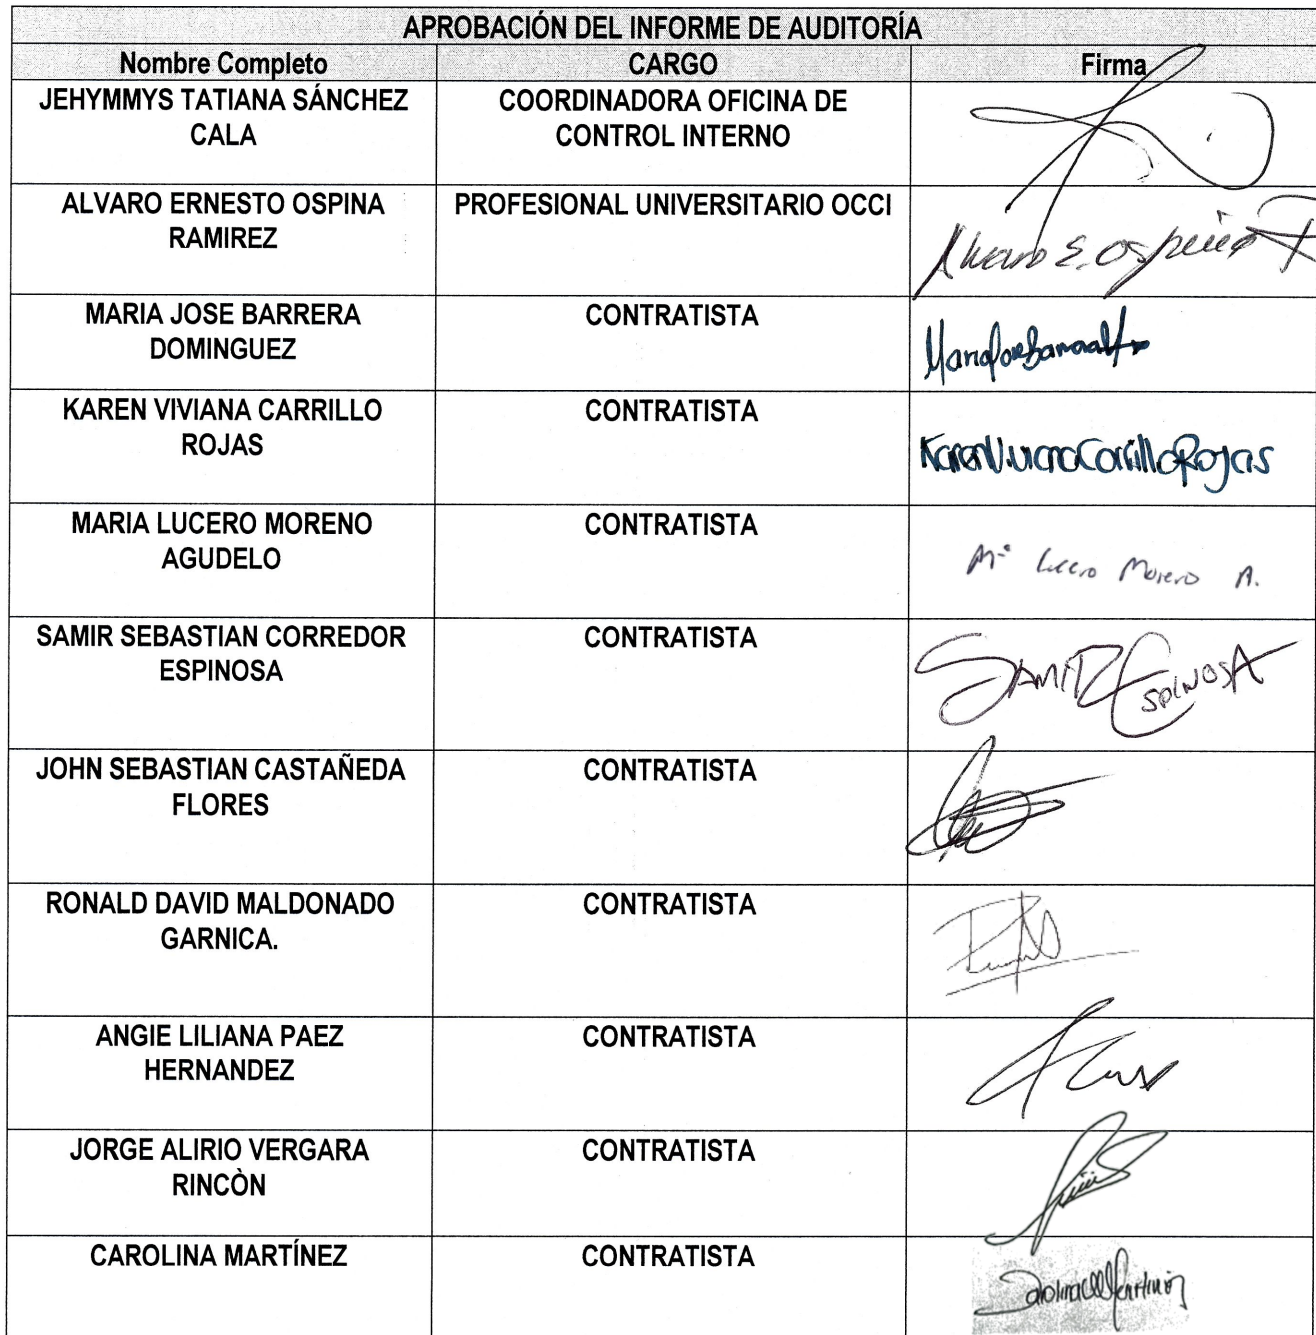 APROBACIÓN DEL INFORME DE AUDITORÍA
Nombre Completo CARGO Firma
JEHYMMYS TATIANA SÁNCHEZ
CALA
COORDINADORA OFICINA DE
CONTROL INTERNO
ALVARO ERNESTO OSPINA
RAMIREZ
PROFESIONAL UNIVERSITARIO OCCI
Alvaro E. Ospina R
MARIA JOSE BARRERA
DOMINGUEZ
CONTRATISTA
KAREN VIVIANA CARRILLO
ROJAS
CONTRATISTA
Karen Viviana Carrillo Rojas
MARIA LUCERO MORENO
AGUDELO
CONTRATISTA
Mª Lucero Moreno A.
SAMIR SEBASTIAN CORREDOR
ESPINOSA
CONTRATISTA
SAMIR ESPINOSA
JOHN SEBASTIAN CASTAÑEDA
FLORES
CONTRATISTA
RONALD DAVID MALDONADO
GARNICA.
CONTRATISTA
ANGIE LILIANA PAEZ
HERNANDEZ
CONTRATISTA
JORGE ALIRIO VERGARA
RINCÒN
CONTRATISTA
CAROLINA MARTÍNEZ
CONTRATISTA